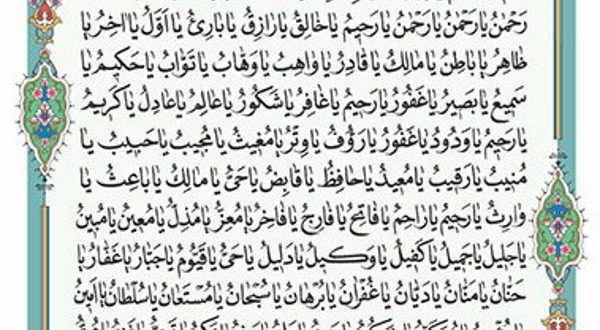 رَحْمٰنُ يا رَحْمٰنُ يا رَحْمٰنُ يا رَحيمُ يا خالِقُ يا رازِقُ يا بارِئُ يا اَوَّلُ يا اخِرُ يا
ظاهِرُ يا باطِنُ يا مالِكُ يا قادِرُ يا واهِبُ يا وَهّابُ يا تَوّابُ يا حَكيمُ يا
سَميعُ يا بَصيرُ يا غَفُورُ يا رَحيمُ يا غافِرُ يا شَكُورُ يا عالِمُ يا عادِلُ يا كَريمُ
يا رَحيمُ يا وَدُودُ يا غَفُورُ يا رَؤُفُ يا وِتْرُ يا مُغيثُ يا مُجيبُ يا حَبيبُ يا
مُنيبُ يا رَقيبُ يا مُعيدُ يا حافِظُ يا قابِضُ يا حَىُّ يا مالِكُ يا باعِثُ يا
وارِثُ يا رَحيمُ يا راحِمُ يا فاتِحُ يا فارِجُ يا فاخِرُ يا مُعِزُّ يا مُذِلُّ يا مُعينُ يا مُبينُ
يا جَليلُ يا جَميلُ يا كَفيلُ يا وَكيلُ يا دَليلُ يا حَىُّ يا قَيُّومُ يا جَبّارُ يا غَفّارُ يا
حَنّانُ يا مَنّانُ يا دَيّانُ يا غُفْرانُ يا بُرْهانُ يا سُبْحانُ يا مُسْتَعانُ يا سُلْطانُ يا اَمينُ